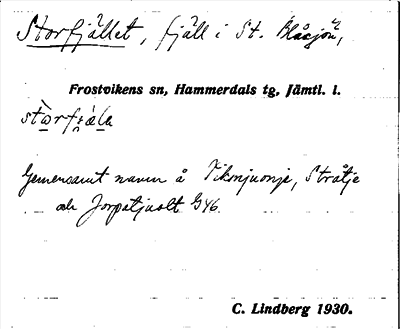 Storfjället, fjäll i St. Blåsjön,
Frostvikens sn, Hammerdals tg, Jämtl. l.
Gemensamt namn å Viknjuonje, Stråtje
och Jorpatjuolt G46.
C. Lindberg 1930.